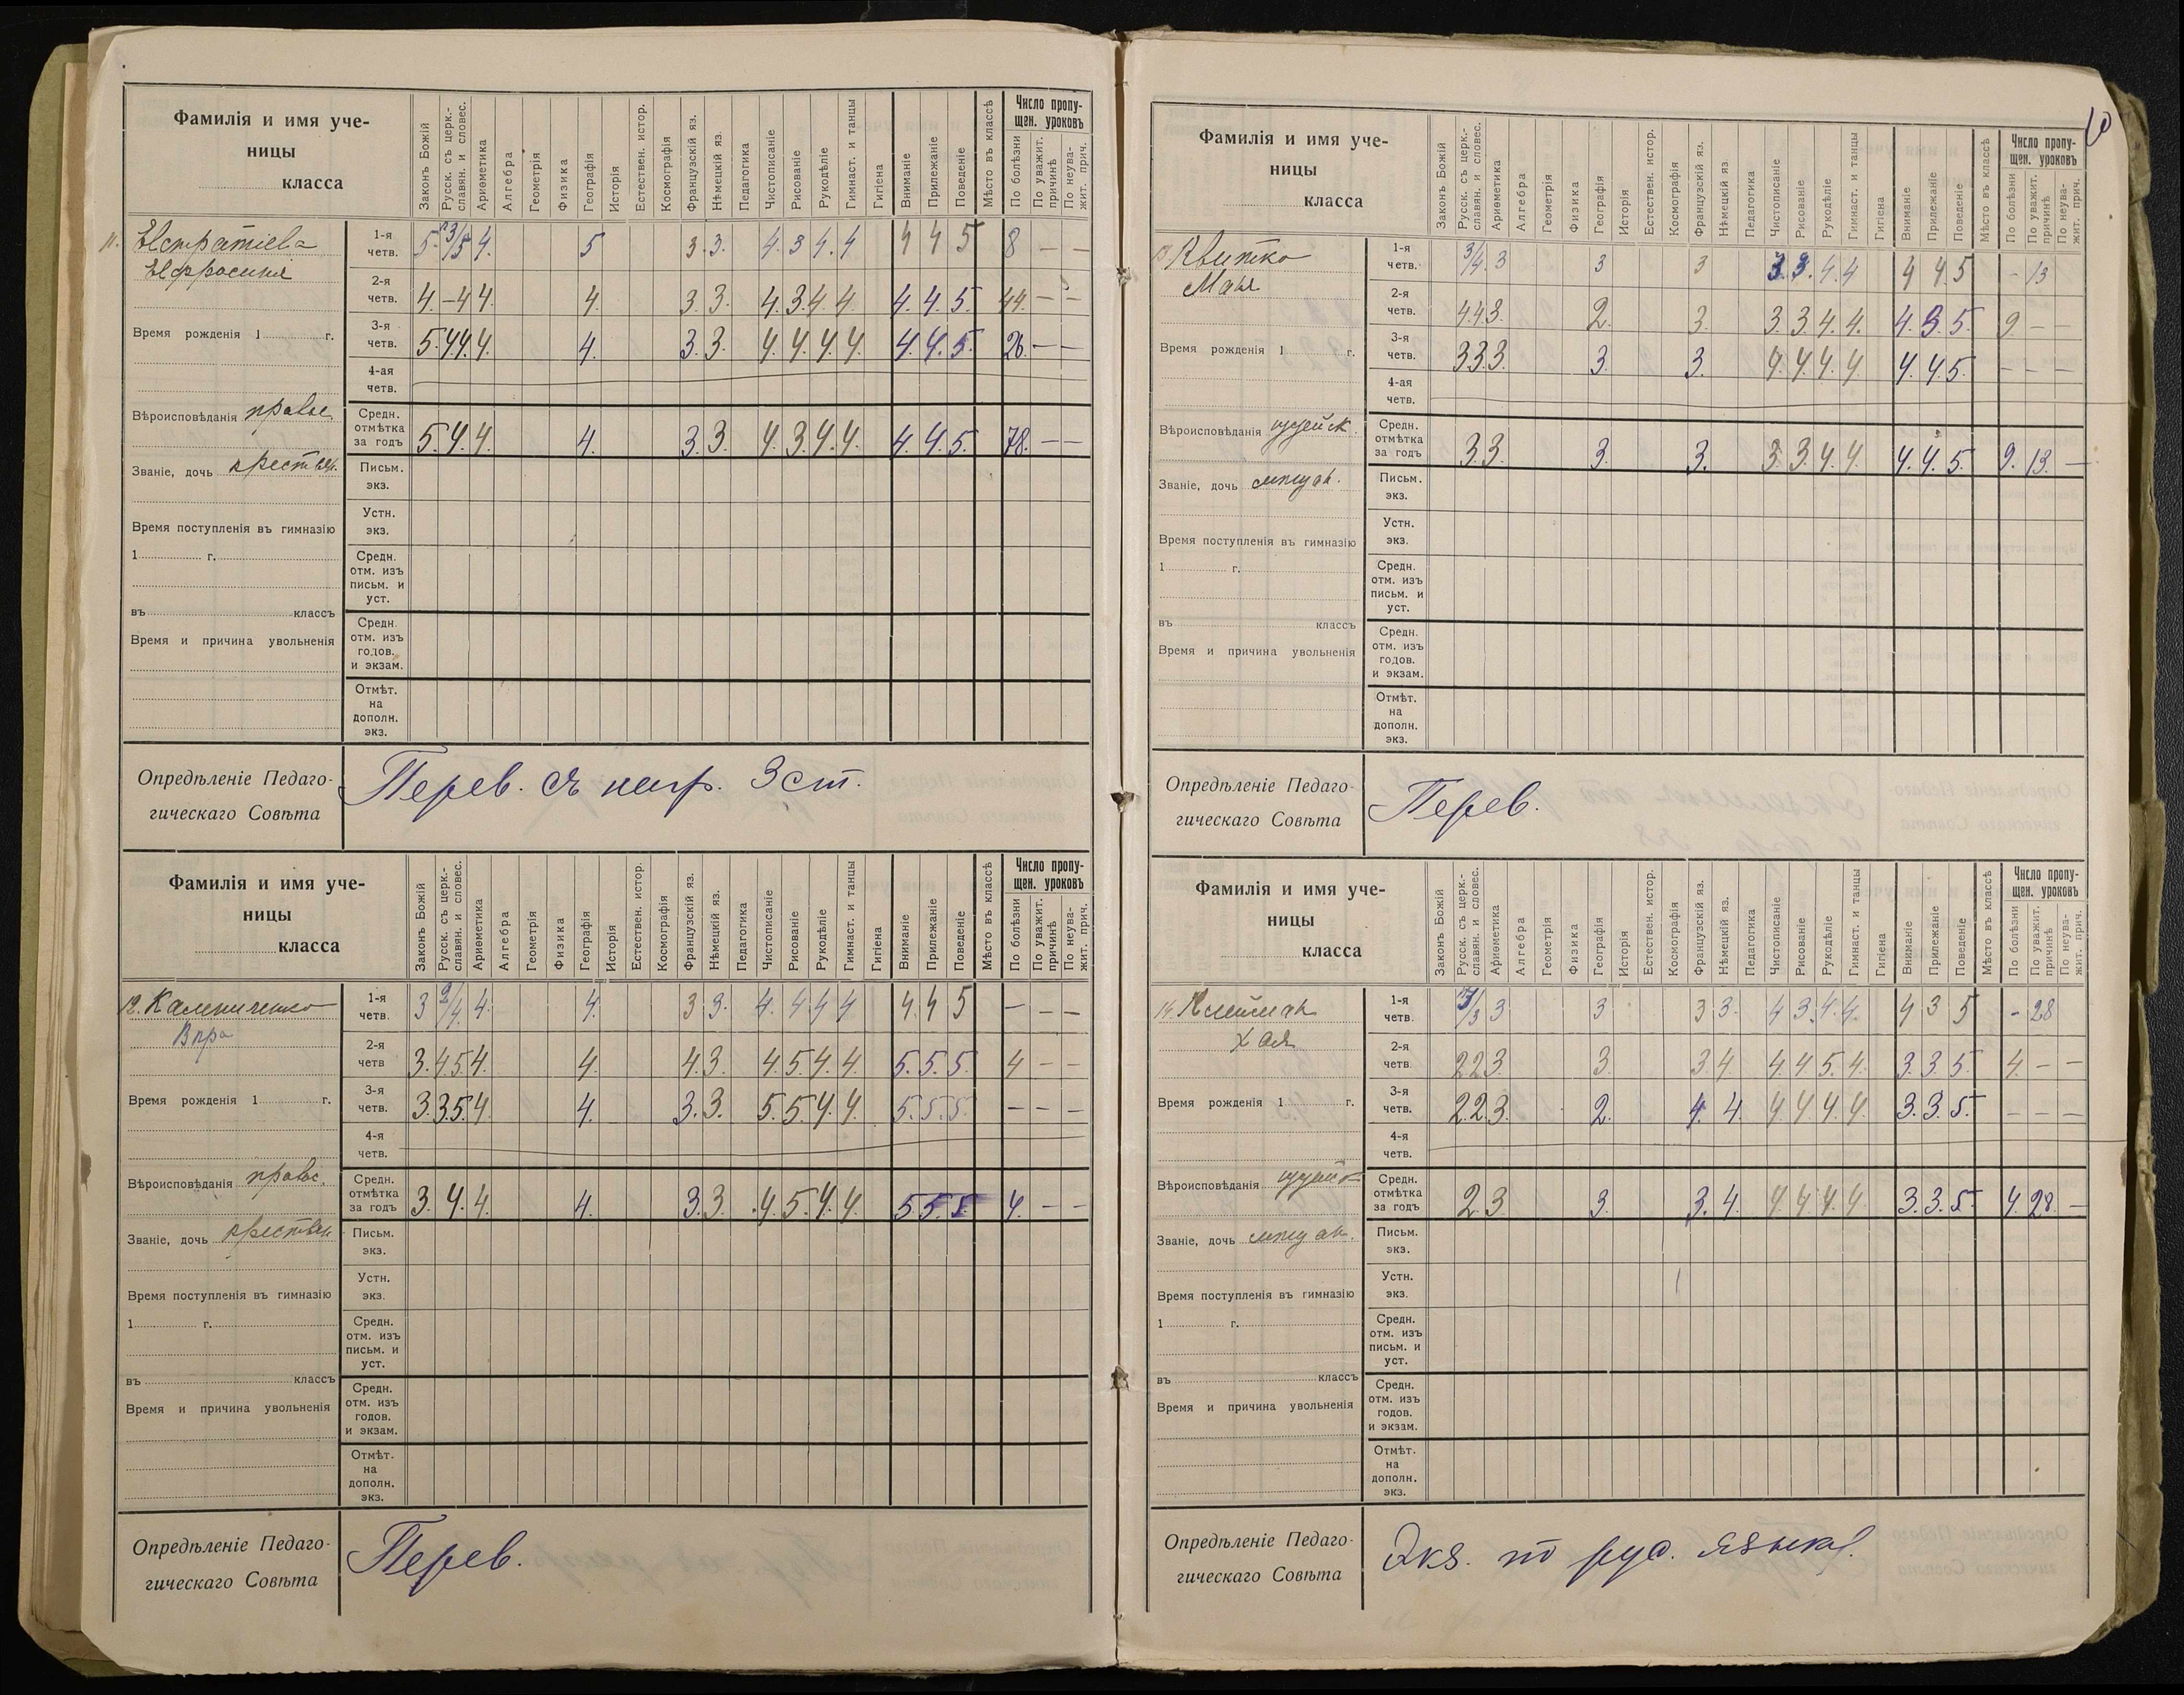 Фамилія и имя уче-
ницы
класса
Законъ Божій
Русск. съ церк.-
славян. и словес.
Ариѳметика
Алгебра
Геометрія
Физика
Географія
Исторія
Естествен. истор.
Космографія
Французскій яз.
Нѣмецкій яз.
Педагогика
Чистописаніе
Рисованіе
Рукодѣліе
Гимнаст. и танцы
Гигіена
Вниманіе
Прилежаніе
Поведеніе
Мѣсто въ классѣ
Число пропу-
щен. уроковъ
По болѣзни
По уважит.
причинѣ
По неува-
жит. прич.
11. Евстратіева
Евфросинія
1-я четв. 5 3/5 4. 5 3. 3. 4. 3 4. 4 4 4 5 8 — —
2-я четв. 4 - 4 4. 4. 3 3. 4. 3 4 4 4. 4. 5 44. — —
3-я четв. 5. 4 4. 4. 4. 3. 3. 4. 4. 4. 4. 4. 4. 5. 26. — —
4-ая четв.
Время рожденія 1 г.
Вѣроисповѣданія правос.
Средн. отмѣтка за годъ 5. 4. 4. 4. 3. 3. 4. 3. 4. 4. 4. 4. 5. 78. — —
Званіе, дочь крестьян.
Письм. экз.
Устн. экз.
Время поступленія въ гимназію
1 г.
Средн. отм. изъ письм. и уст.
въ классъ
Время и причина увольненія
Средн. отм. изъ годов. и экзам.
Отмѣт. на дополн. экз.
Опредѣленіе Педаго-
гическаго Совѣта
Перев. съ нагр. 3 ст.
Фамилія и имя уче-
ницы
класса
Законъ Божій
Русск. съ церк.-
славян. и словес.
Ариѳметика
Алгебра
Геометрія
Физика
Географія
Исторія
Естествен. истор.
Космографія
Французскій яз.
Нѣмецкій яз.
Педагогика
Чистописаніе
Рисованіе
Рукодѣліе
Гимнаст. и танцы
Гигіена
Вниманіе
Прилежаніе
Поведеніе
Мѣсто въ классѣ
Число пропу-
щен. уроковъ
По болѣзни
По уважит.
причинѣ
По неува-
жит. прич.
12. Калениченко
Вѣра
1-я четв. 3 2/4 4. 4. 3 3. 4. 4 4 4 4 4 5 — — —
2-я четв 3. 4. 5 4. 4. 4. 3. 4. 5. 4. 4. 5. 5. 5. 4 — —
3-я четв. 3. 3. 5. 4. 4. 3. 3. 5. 5. 4. 4. 5. 5. 5. — — —
4-я четв.
Время рожденія 1 г.
Вѣроисповѣданія правос.
Средн. отмѣтка за годъ 3. 4. 4. 4. 3. 3. 4. 5. 4. 4. 5 5. 5. 4. — —
Званіе, дочь крестьян
Письм. экз.
Устн. экз.
Время поступленія въ гимназію
1 г.
Средн. отм. изъ письм. и уст.
въ классъ
Время и причина увольненія
Средн. отм. изъ годов. и экзам.
Отмѣт. на дополн. экз.
Опредѣленіе Педаго-
гическаго Совѣта
Перев.
10
Фамилія и имя уче-
ницы
класса
Законъ Божій
Русск. съ церк.-
славян. и словес.
Ариѳметика
Алгебра
Геометрія
Физика
Географія
Исторія
Естествен. истор.
Космографія
Французскій яз.
Нѣмецкій яз.
Педагогика
Чистописаніе
Рисованіе
Рукодѣліе
Гимнаст. и танцы
Гигіена
Вниманіе
Прилежаніе
Поведеніе
Мѣсто въ классѣ
Число пропу-
щен. уроковъ
По болѣзни
По уважит.
причинѣ
По неува-
жит. прич.
13. Квитко
Маня
1-я четв. 3/4. 3 3 3 3. 3. 4. 4 4 4. 5 - 13
2-я четв. 4. 4 3. 2. 3. 3. 3 4 4. 4. 3. 5. 9 — —
3-я четв. 3 3. 3. 3. 3. 4. 4. 4. 4. 4. 4. 5. — — —
4-ая четв.
Время рожденія 1 г.
Вѣроисповѣданія іудейск.
Средн. отмѣтка за годъ 3. 3. 3. 3. 3. 3. 4. 4. 4. 4. 5. 9. 13. —
Званіе, дочь мѣщан.
Письм. экз.
Устн. экз.
Время поступленія въ гимназію
1 г.
Средн. отм. изъ письм. и уст.
въ классъ
Время и причина увольненія
Средн. отм. изъ годов. и экзам.
Отмѣт. на дополн. экз.
Опредѣленіе Педаго-
гическаго Совѣта
Перев.
Фамилія и имя уче-
ницы
класса
Законъ Божій
Русск. съ церк.-
славян. и словес.
Ариѳметика
Алгебра
Геометрія
Физика
Географія
Исторія
Естествен. истор.
Космографія
Французскій яз.
Нѣмецкій яз.
Педагогика
Чистописаніе
Рисованіе
Рукодѣліе
Гимнаст. и танцы
Гигіена
Вниманіе
Прилежаніе
Поведеніе
Мѣсто въ классѣ
Число пропу-
щен. уроковъ
По болѣзни
По уважит.
причинѣ
По неува-
жит. прич.
14 Клейман
Хая
1-я четв. 3/3 3 3 3 3. 4 3. 4. 4. 4 3 5 - 28
2-я четв. 2 2 3 3. 3 4 4. 4 5. 4. 3. 3. 5 4. — —
3-я четв. 2. 2. 3. 2. 4. 4. 4. 4. 4. 4. 3. 3. 5. — — —
4-я четв.
Время рожденія 1 г.
Вѣроисповѣданія іудейск
Средн. отмѣтка за годъ 2. 3. 3. 3. 4. 4. 4. 4. 4. 3. 3. 5. 4. 28. —
Званіе, дочь мѣщан.
Письм. экз.
Устн. экз.
Время поступленія въ гимназію
1 г.
Средн. отм. изъ письм. и уст.
въ классъ
Время и причина увольненія
Средн. отм. изъ годов. и экзам.
Отмѣт. на дополн. экз.
Опредѣленіе Педаго-
гическаго Совѣта
Экз. по рус. языку.